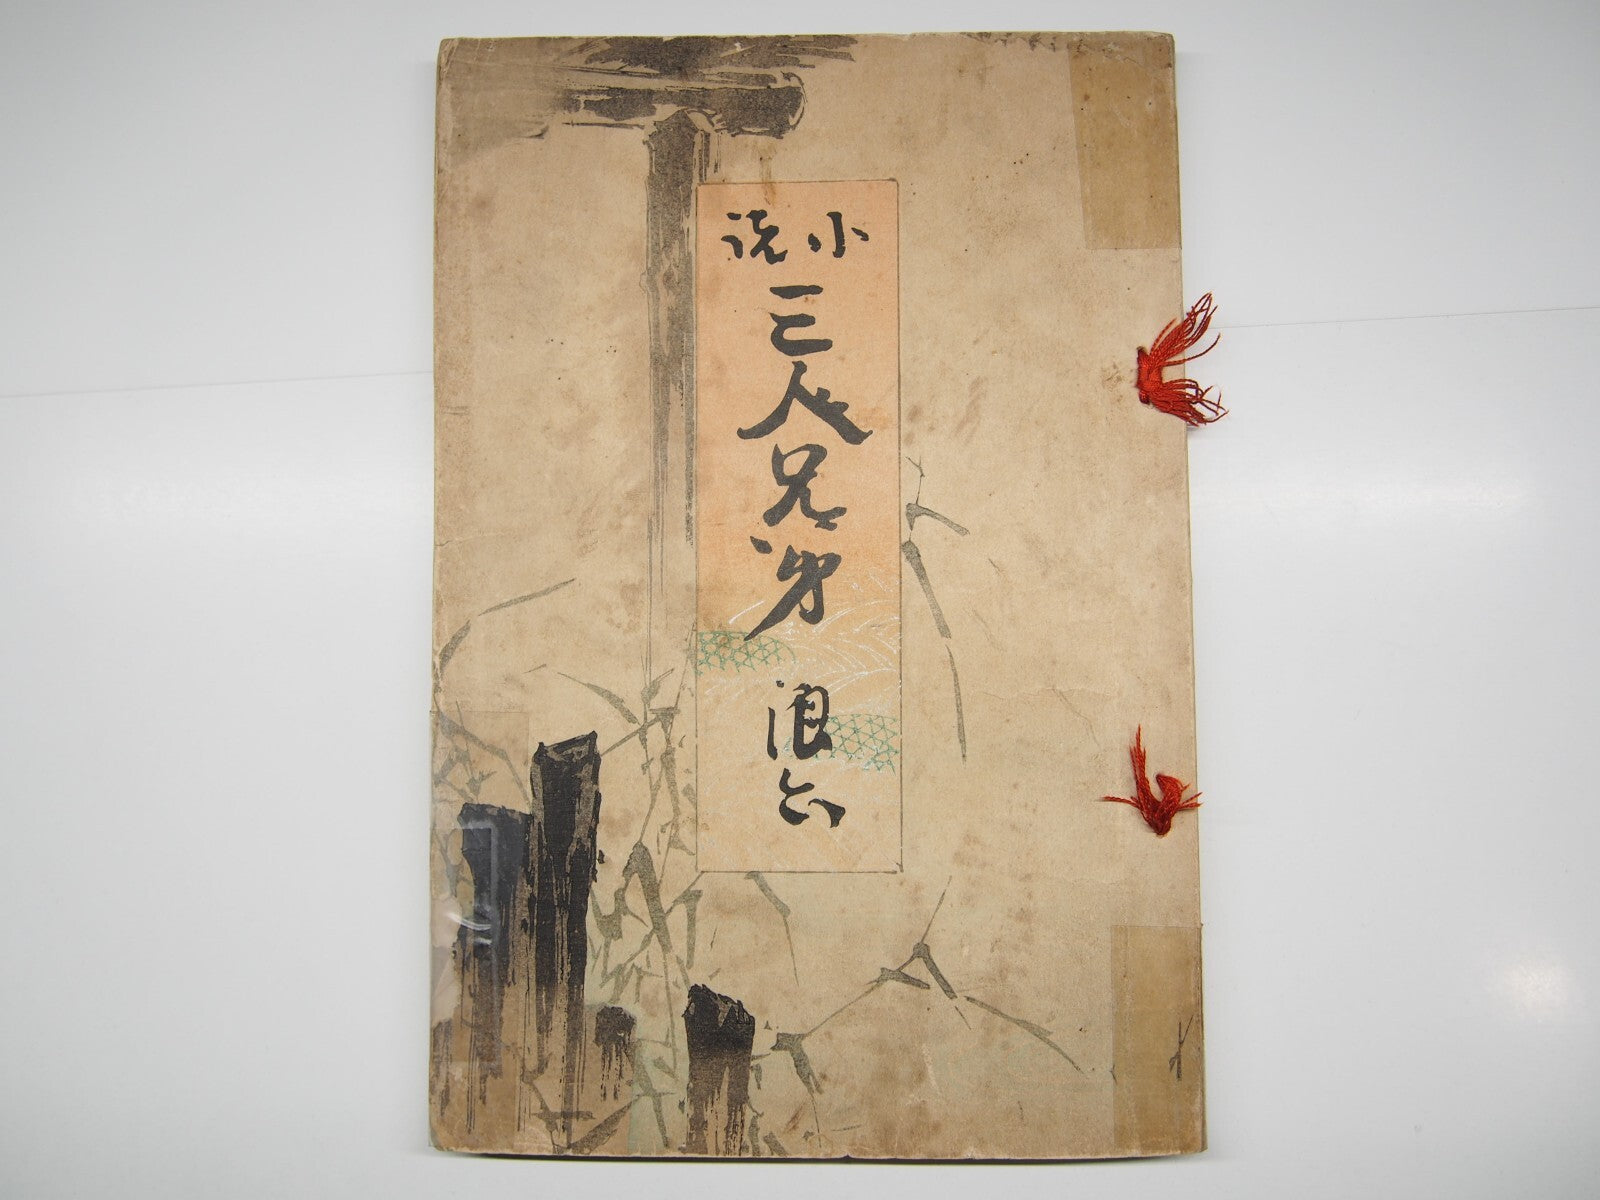 小説
三人兄弟
浪六